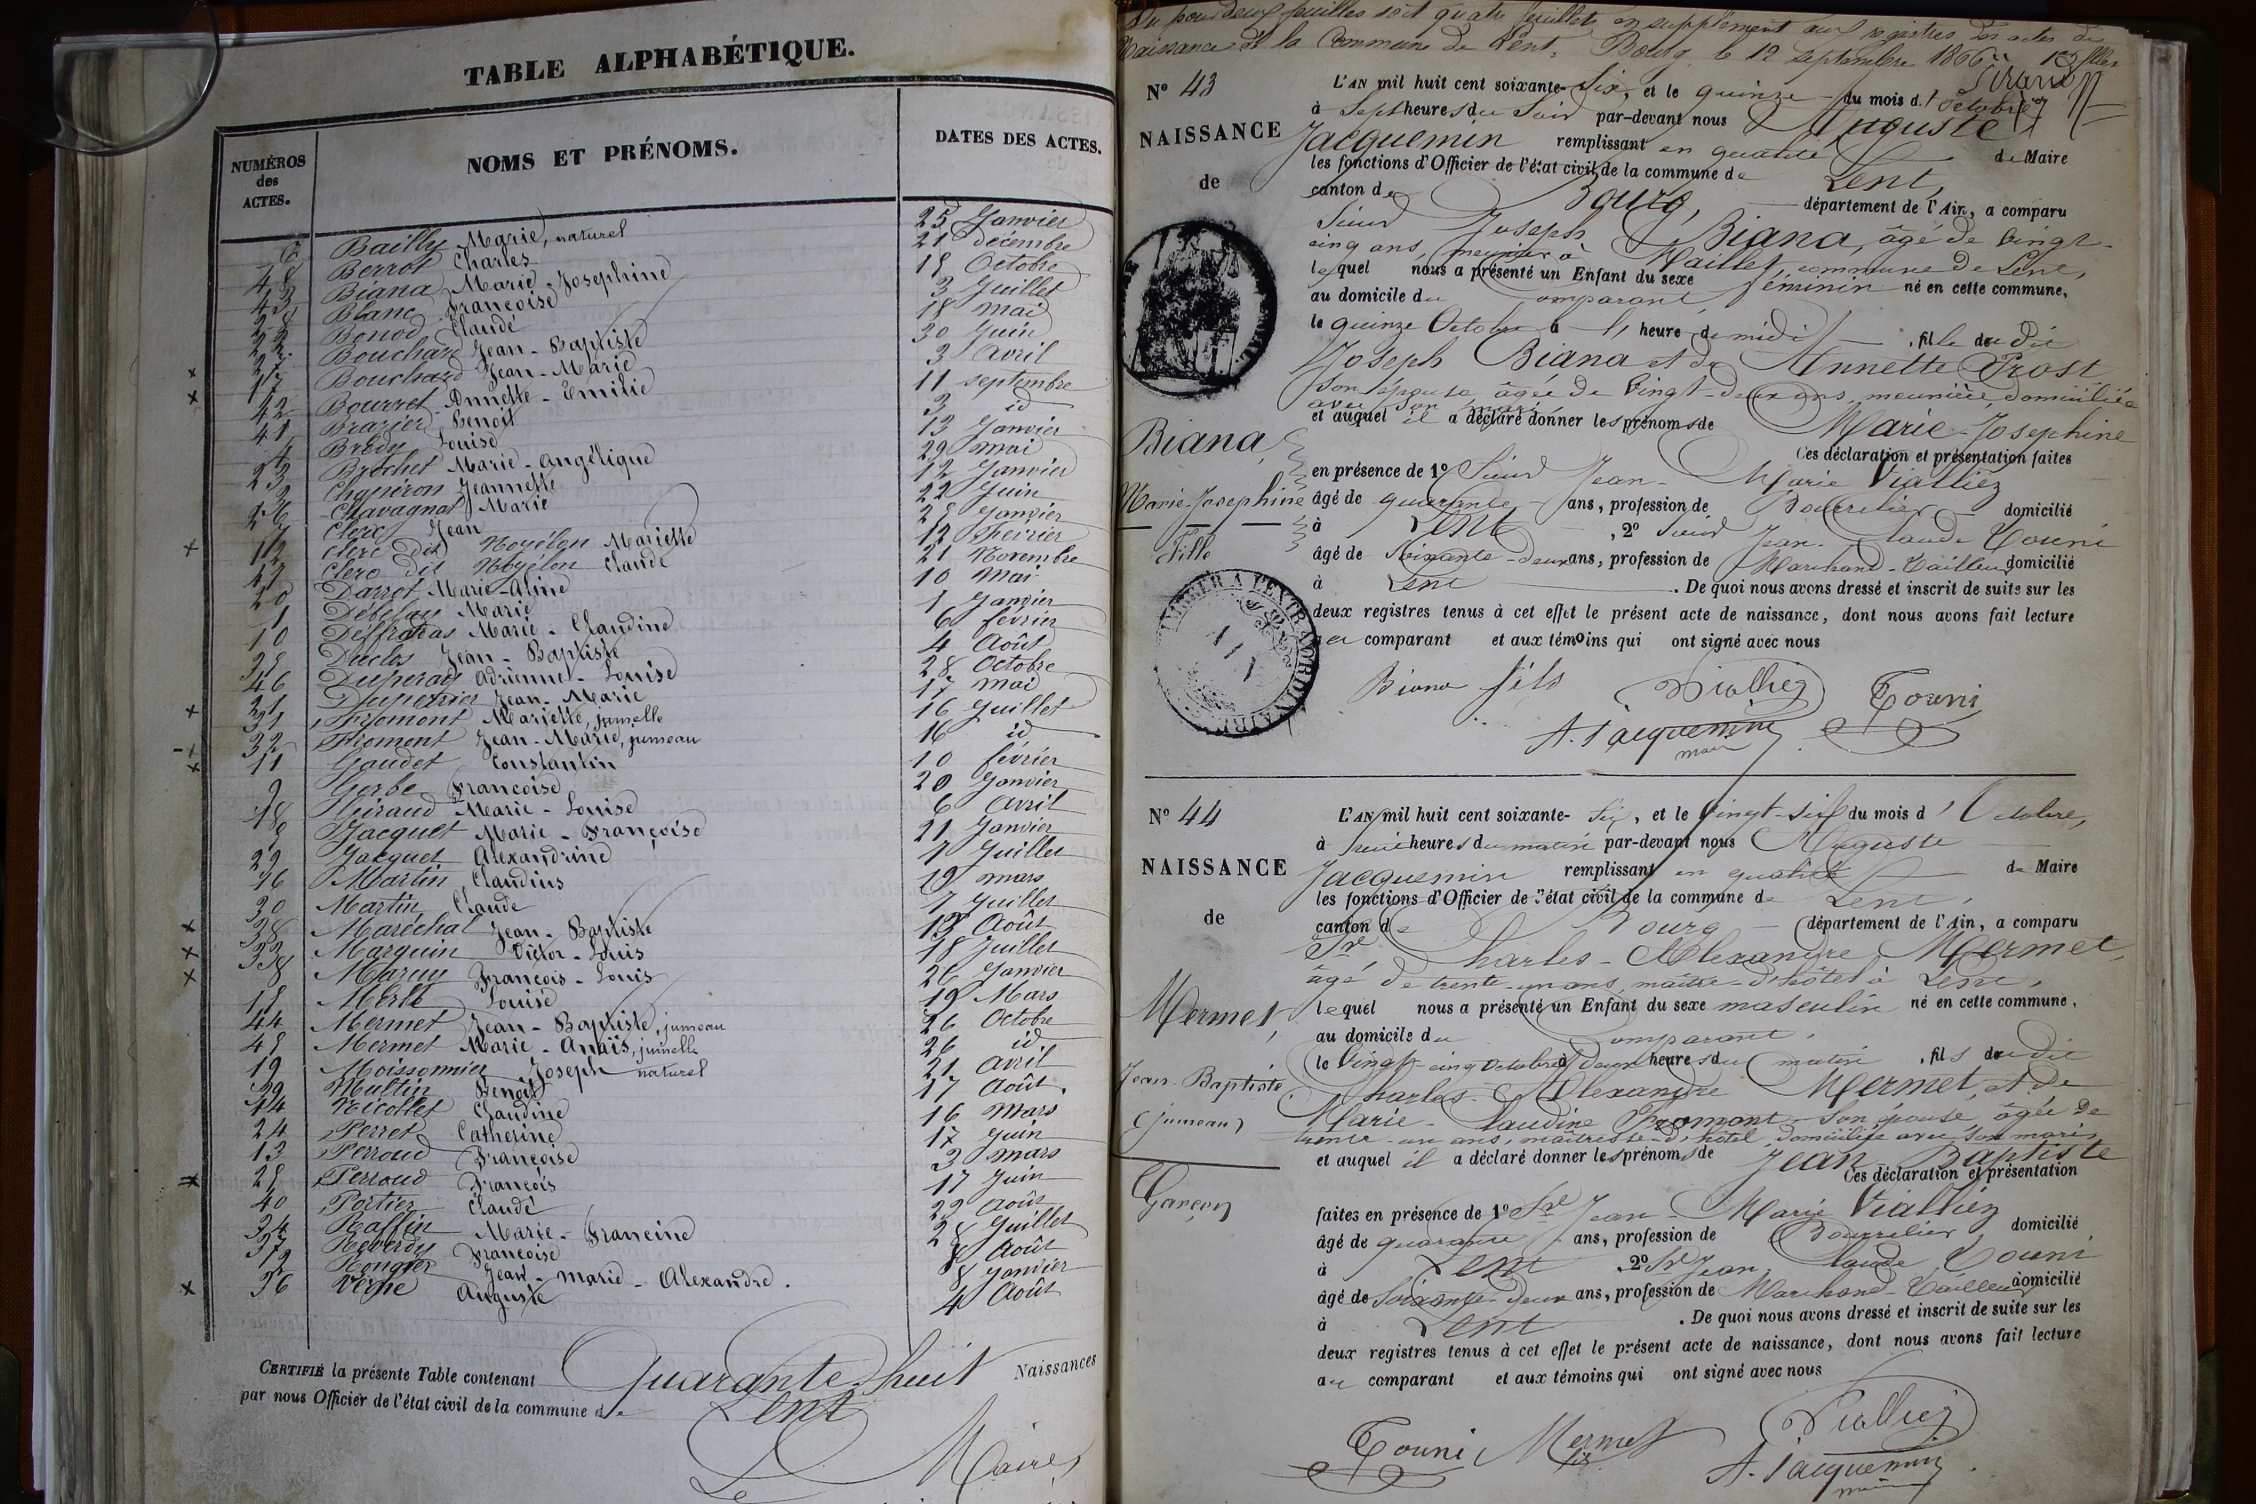 TABLE ALPHABÉTIQUE.
NUMÉROS des ACTES. NOMS ET PRÉNOMS. DATES DES ACTES.
6 Bailly Marie, naturel 25 Janvier
48 Berrot Charles 21 décembre
43 Biana Marie-Josephine 18 Octobre
Blanc Françoise 3 Juillet
22 Benod Claude 18 mai
Bouchard Jean-Baptiste 30 Juin
17 Bouchard Jean-Marie 3 Avril
42 Bourret Annette-Emilie 11 septembre
41 Brazier Benoit 3 id
4 Brédy Louise 13 Janvier
23 Brochet Marie-Angélique 29 mai
3 Chapéron Jeannette 12 Janvier
26 Chavagnat Marie 22 Juin
7 Clerc Jean 28 Janvier
12 Clerc dit Noyélon Mariette 12 Février
47 Clerc dit Noyélon Claude 21 Novembre
20 Darrot Marie-Aline 10 mai
1 Marie 1 Janvier
10 Marie-Claudine 6 février
Duclos Jean-Baptiste 4 Août
46 Duperay Adrienne-Louise 28 Octobre
21 Duperrier Jean-Marie 17 mai
31 Fromont Mariette, jumelle 16 Juillet
32 Fromont Jean-Marie, jumeau 16 id
11 Gaudet Constantin 10 février
Gerbe Françoise 20 Janvier
18 Guiraud Marie-Louise 6 Avril
Jacquet Marie-Françoise 21 Janvier
29 Jacquet Alexandrine 7 Juillet
16 Martin Claudius 19 mars
30 Martin Claude 7 Juillet
38 Maréchal Jean-Baptiste 13 Août
33 Marguin Victor-Louis 18 Juillet
8 François-Louis 26 Janvier
15 Merle Louise 19 Mars
44 Mermet Jean-Baptiste, jumeau 26 Octobre
45 Mermet Marie-Anaïs, jumelle 26 id
19 Moissonnier Joseph naturel 21 Avril
39 Multin Benoit 17 Août
14 Nicollet Claudine 16 Mars
24 Perret Catherine 17 Juin
13 Perroud Françoise 3 mars
25 Perroud François 17 Juin
40 Portier Claude 22 Août
34 Raffin Marie-Francine 28 Juillet
37 Reverdy Françoise 8 Août
2 Jean-marie-Alexandre. 8 Janvier
36 Verne Auguste 4 Août
CERTIFIÉ la présente Table contenant Quarante-huit Naissances
par nous Officier de l'état civil de la commune de Lent
Le Maire,
Vu pour deux feuilles soit quatre feuillets en supplément aux registres des actes de
Naissances de la Commune de Lent. Bourg, le 12 septembre 1866
N° 43 L'AN mil huit cent soixante-Six, et le quinze du mois d'Octobre
à Sept heures du Soir par-devant nous Auguste
NAISSANCE Jacquemin remplissant en qualité de Maire
les fonctions d'Officier de l'état civil de la commune de Lent,
de canton de Bourg, département de l'Ain, a comparu
Sieur Joseph Biana, âgé de vingt-
cinq ans, meunier à Maillet, commune de Lent,
lequel nous a présenté un Enfant du sexe féminin né en cette commune,
au domicile du comparant
le quinze Octobre à heure de midi, fille dudit
Joseph Biana et de Annette Prost
son épouse, âgée de vingt-deux ans, meunière, domiciliée
avec son mari
et auquel il a déclaré donner les prénoms de Marie-Josephine
Biana, Ces déclaration et présentation faites
en présence de 1° Sieur Jean-Marie Vialliez
Marie-Josephine âgé de quarante ans, profession de Bourrelier domicilié
à Lent, 2° Sieur Jean-Claude Touni
fille âgé de Soixante-deux ans, profession de Marchand-Tailleur domicilié
à Lent. De quoi nous avons dressé et inscrit de suite sur les
TIMBRE A L'EXTRAORDINAIRE
deux registres tenus à cet effet le présent acte de naissance, dont nous avons fait lecture
au comparant et aux témoins qui ont signé avec nous
Biana fils Vialliez Touni
A. Jacquemin
maire
N° 44 L'AN mil huit cent soixante-Six, et le vingt-six du mois d'Octobre,
à heures du matin par-devant nous Auguste
NAISSANCE Jacquemin remplissant en qualité de Maire
les fonctions d'Officier de l'état civil de la commune de Lent,
de canton de Bourg département de l'Ain, a comparu
Sr Charles-Alexandre Mermet,
âgé de trente-un ans, maître-d'hôtel à Lent,
Mermet, lequel nous a présenté un Enfant du sexe masculin né en cette commune,
au domicile du comparant,
le vingt-cinq Octobre à deux heures du matin, fils dudit
Jean-Baptiste. Charles-Alexandre Mermet, et de
(jumeau) Marie-Claudine Fromont son épouse, âgée de
trente-un ans, maîtresse-d'hôtel, domiciliée avec son mari
et auquel il a déclaré donner les prénoms de Jean-Baptiste
Garçon Ces déclaration et présentation
faites en présence de 1° Sr Jean-Marie Vialliez
âgé de quarante ans, profession de Bourrelier domicilié
à Lent 2° Sr Jean Claude Touni
âgé de Soixante-deux ans, profession de Marchand-Tailleur domicilié
à Lent. De quoi nous avons dressé et inscrit de suite sur les
deux registres tenus à cet effet le présent acte de naissance, dont nous avons fait lecture
au comparant et aux témoins qui ont signé avec nous
Touni Mermet Vialliez
A. Jacquemin
maire